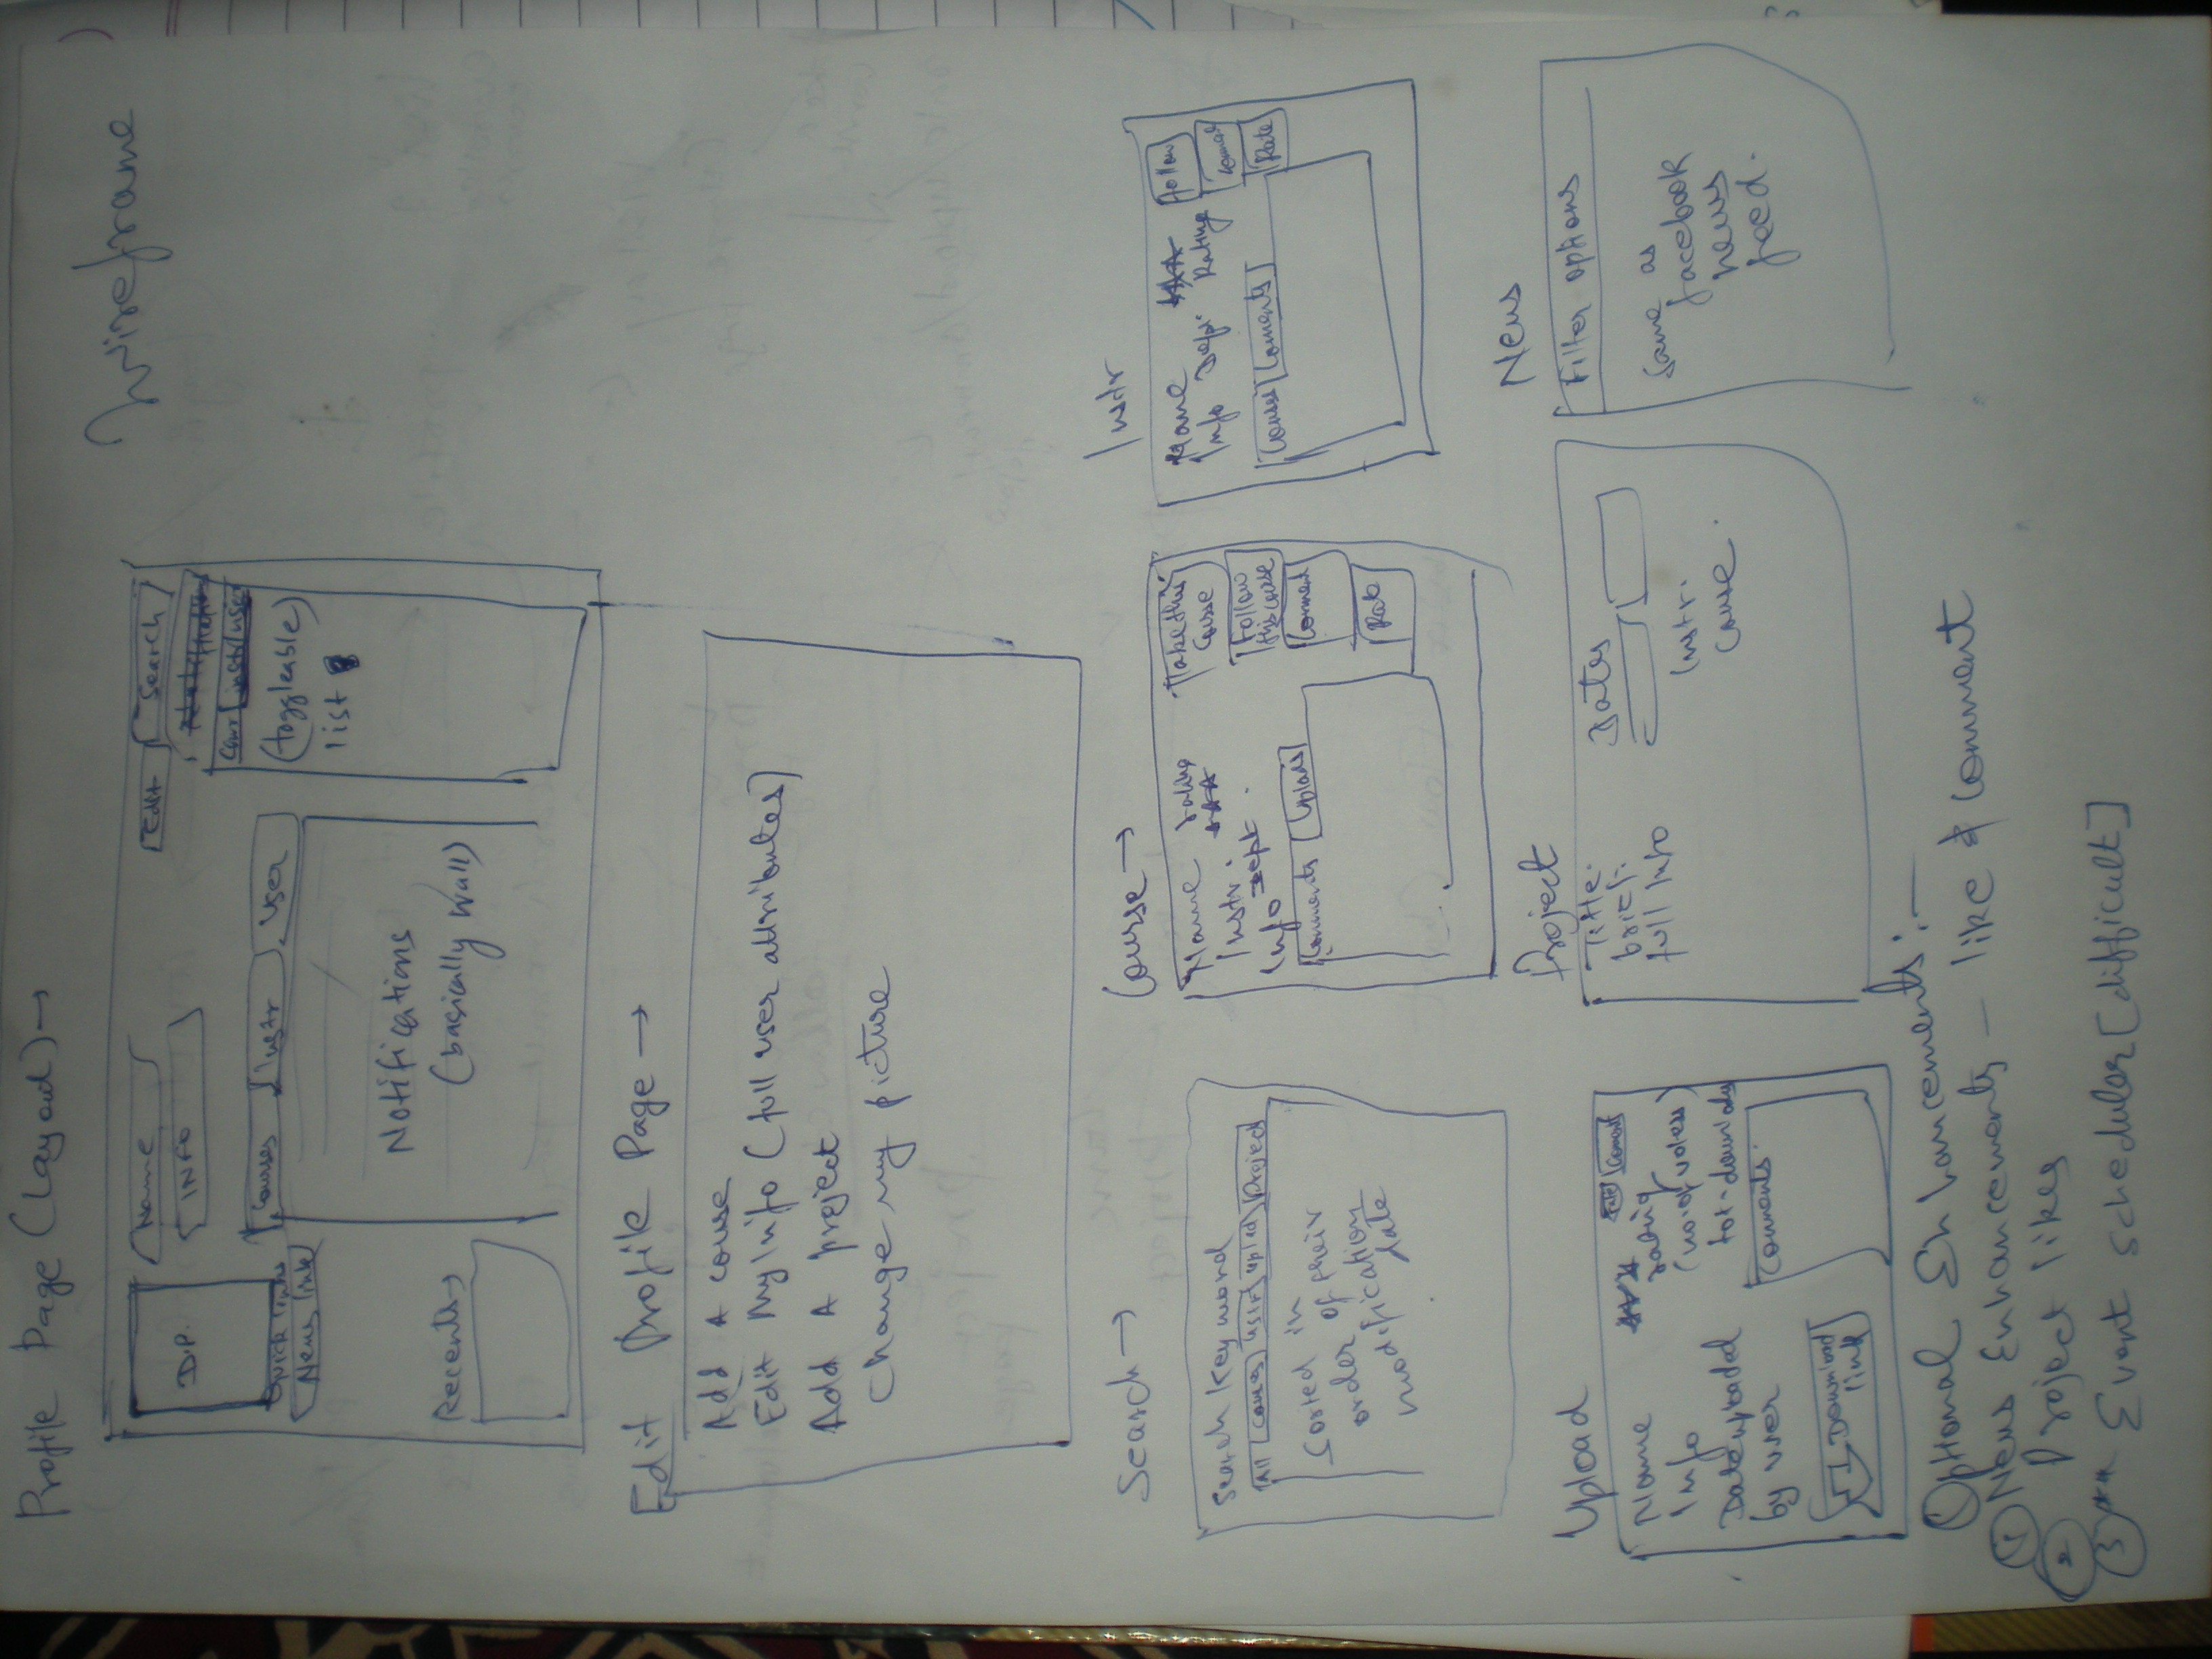 Wireframe
Profile Page (Layout) →
D.P.
Name
INFO
Edit
Search
Courses
Instr
User
Quick links
News link
Recents →
Notifications
(basically Wall)
(toggleable)
list
Edit Profile Page →
Add A Couse
Edit My Info (full user attributes)
Add A project
Change my picture
Search →
Search Key word
All
Courses
Upload
Project
Sorted in
order of their
modification
date
Course →
Name rating
Instr.
Info Dept.
Comments
Uploads
Take this
Course
Follow
this course
Comment
Rate
Instr
Name
Info Dept. Rating
Follow
Comment
Rate
Courses
Comments
Upload
Name
Info
Date uploaded
by user
Download
link
Rate
Comment
rating
(no. of votes)
tot. downloads
Comments
Project
Title:
brief:
full Info
Dates
Instr.
Course.
News
Filter options
Same as
facebook
news
feed.
Optional Enhancements:-
① News Enhancements - like & Comment
② Project likes
③ *** Event scheduler [difficult]